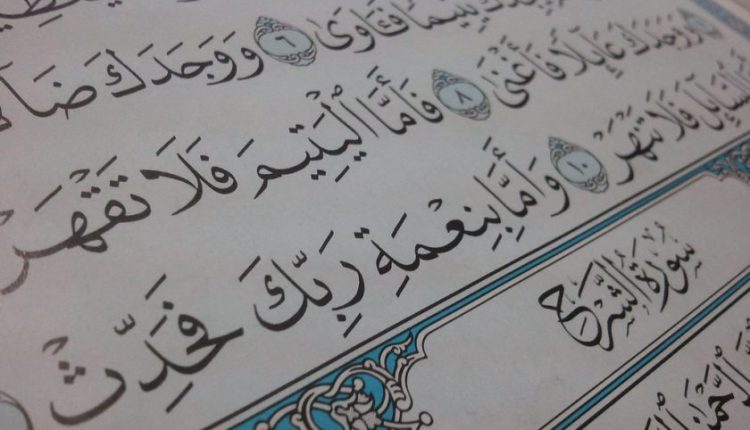 يَتِيمًا فَـَٔاوَىٰ ٦ وَوَجَدَكَ
وَوَجَدَكَ عَآئِلًا فَأَغْنَىٰ ٨ فَأَمَّا ٱلْيَتِيمَ فَلَا تَقْهَرْ
ٱلسَّآئِلَ فَلَا تَنْهَرْ ١٠ وَأَمَّا بِنِعْمَةِ رَبِّكَ فَحَدِّثْ
سُورَةُ الشَّرْحِ
ٱلرَّحْمَٰنِ